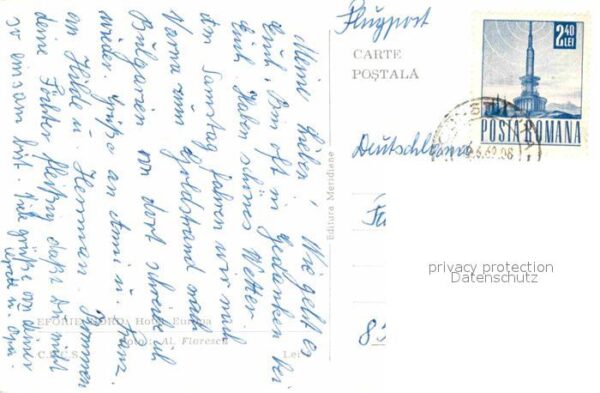 Meine Lieben! Wie geht es
Euch. Bin oft in Gedanken bei
Euch. Haben schönes Wetter.
Am Samstag fahren wir nach
Varna zum Goldstrand nach
Bulgarien von dort schreibe ich
wieder. Grüße an Anni u. Franz.
an Hilde u. Herrman. Kommen
deine Töchter fleißig daß du nicht
so einsam bist. Viele grüße von deiner
u. Opa.
EFORIE NORD: Hotel Europa
Foto: Al. Florescu
C.P.C.S.
Lei
Editura Meridiane
Flugpost
CARTE
POȘTALĂ
2,40
LEI
POSTA ROMANA
Deutschland
privacy protection
Datenschutz
8